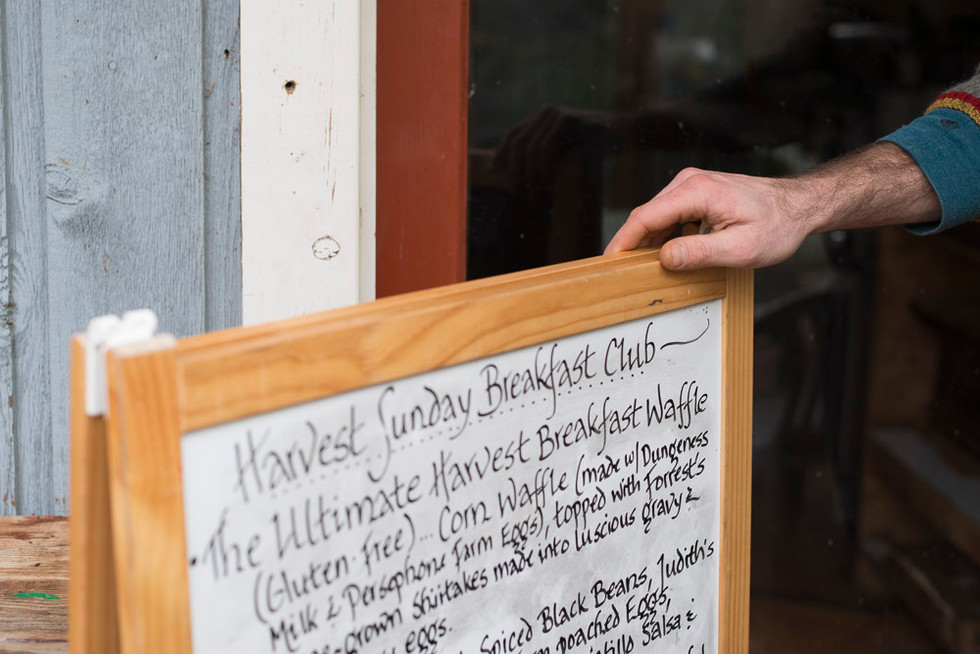 Harvest Sunday Breakfast Club
• The Ultimate Harvest Breakfast Waffle
(Gluten-free)... Corn Waffle (made w/ Dungeness
Milk & Persephone Farm Eggs), topped with Forrest's
grown Shiitakes made into luscious gravy &
eggs.
Spiced Black Beans, Judith's
poached Eggs,
Salsa &